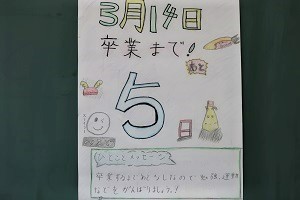 3月14日
卒業まで!
あと
5
日
ひとことメッセージ
卒業するまであと少しなので勉強、運動
などをがんばりましょう!